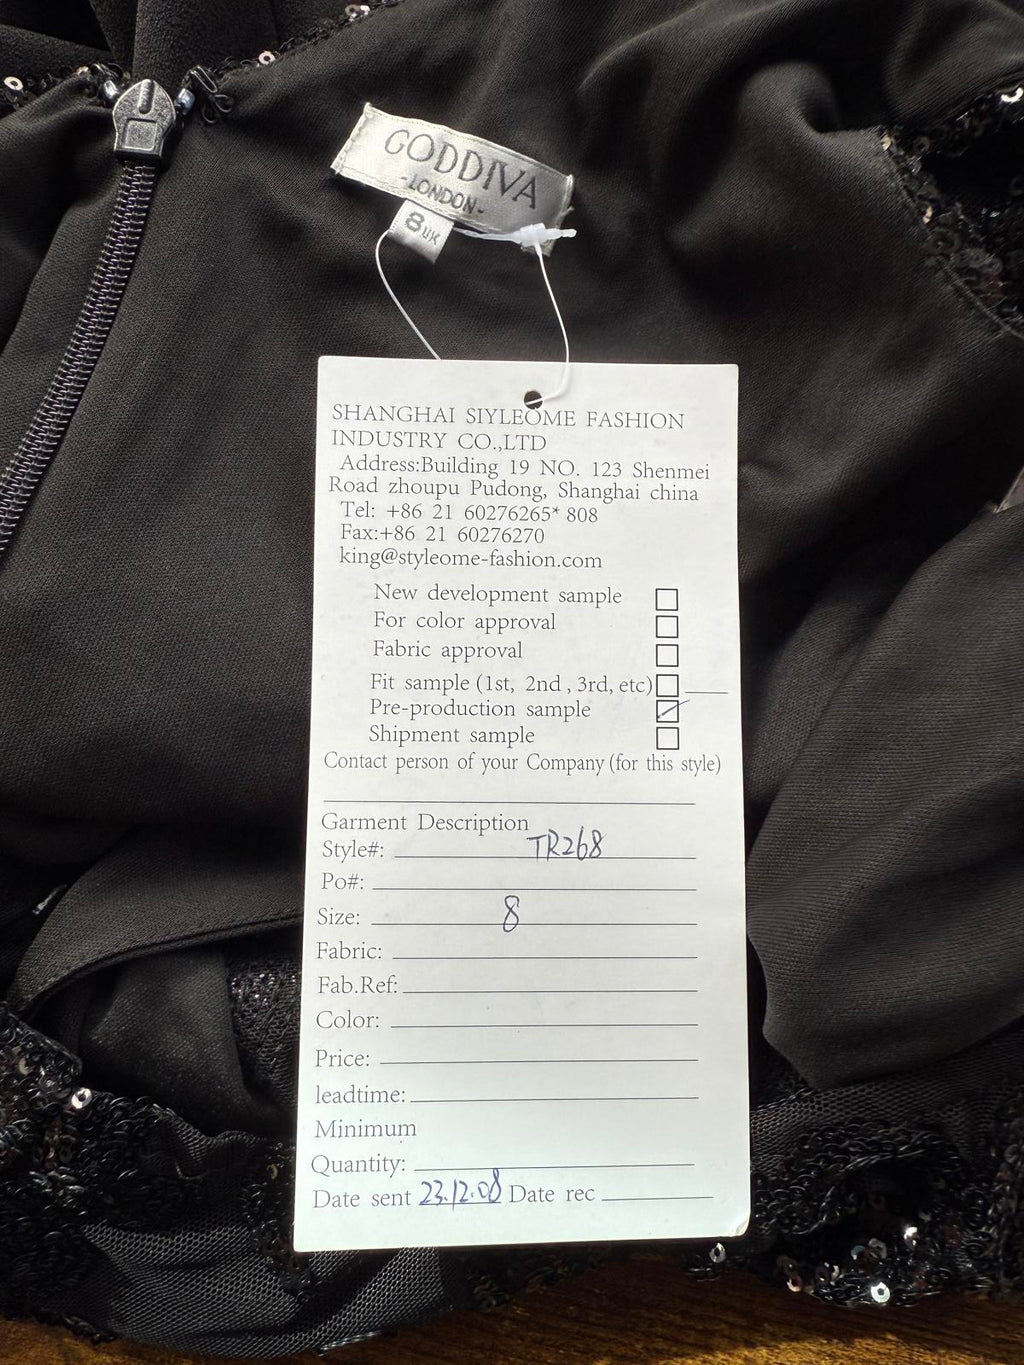 GODDIVA
-LONDON-
8UK
SHANGHAI SIYLEOME FASHION
INDUSTRY CO.,LTD
Address:Building 19 NO. 123 Shenmei
Road zhoupu Pudong, Shanghai china
Tel: +86 21 60276265* 808
Fax:+86 21 60276270
king@styleome-fashion.com
New development sample
For color approval
Fabric approval
Fit sample (1st, 2nd , 3rd, etc)
Pre-production sample
Shipment sample
Contact person of your Company (for this style)
Garment Description
Style#: TR268
Po#:
Size: 8
Fabric:
Fab.Ref:
Color:
Price:
leadtime:
Minimum
Quantity:
Date sent 23.12.08 Date rec